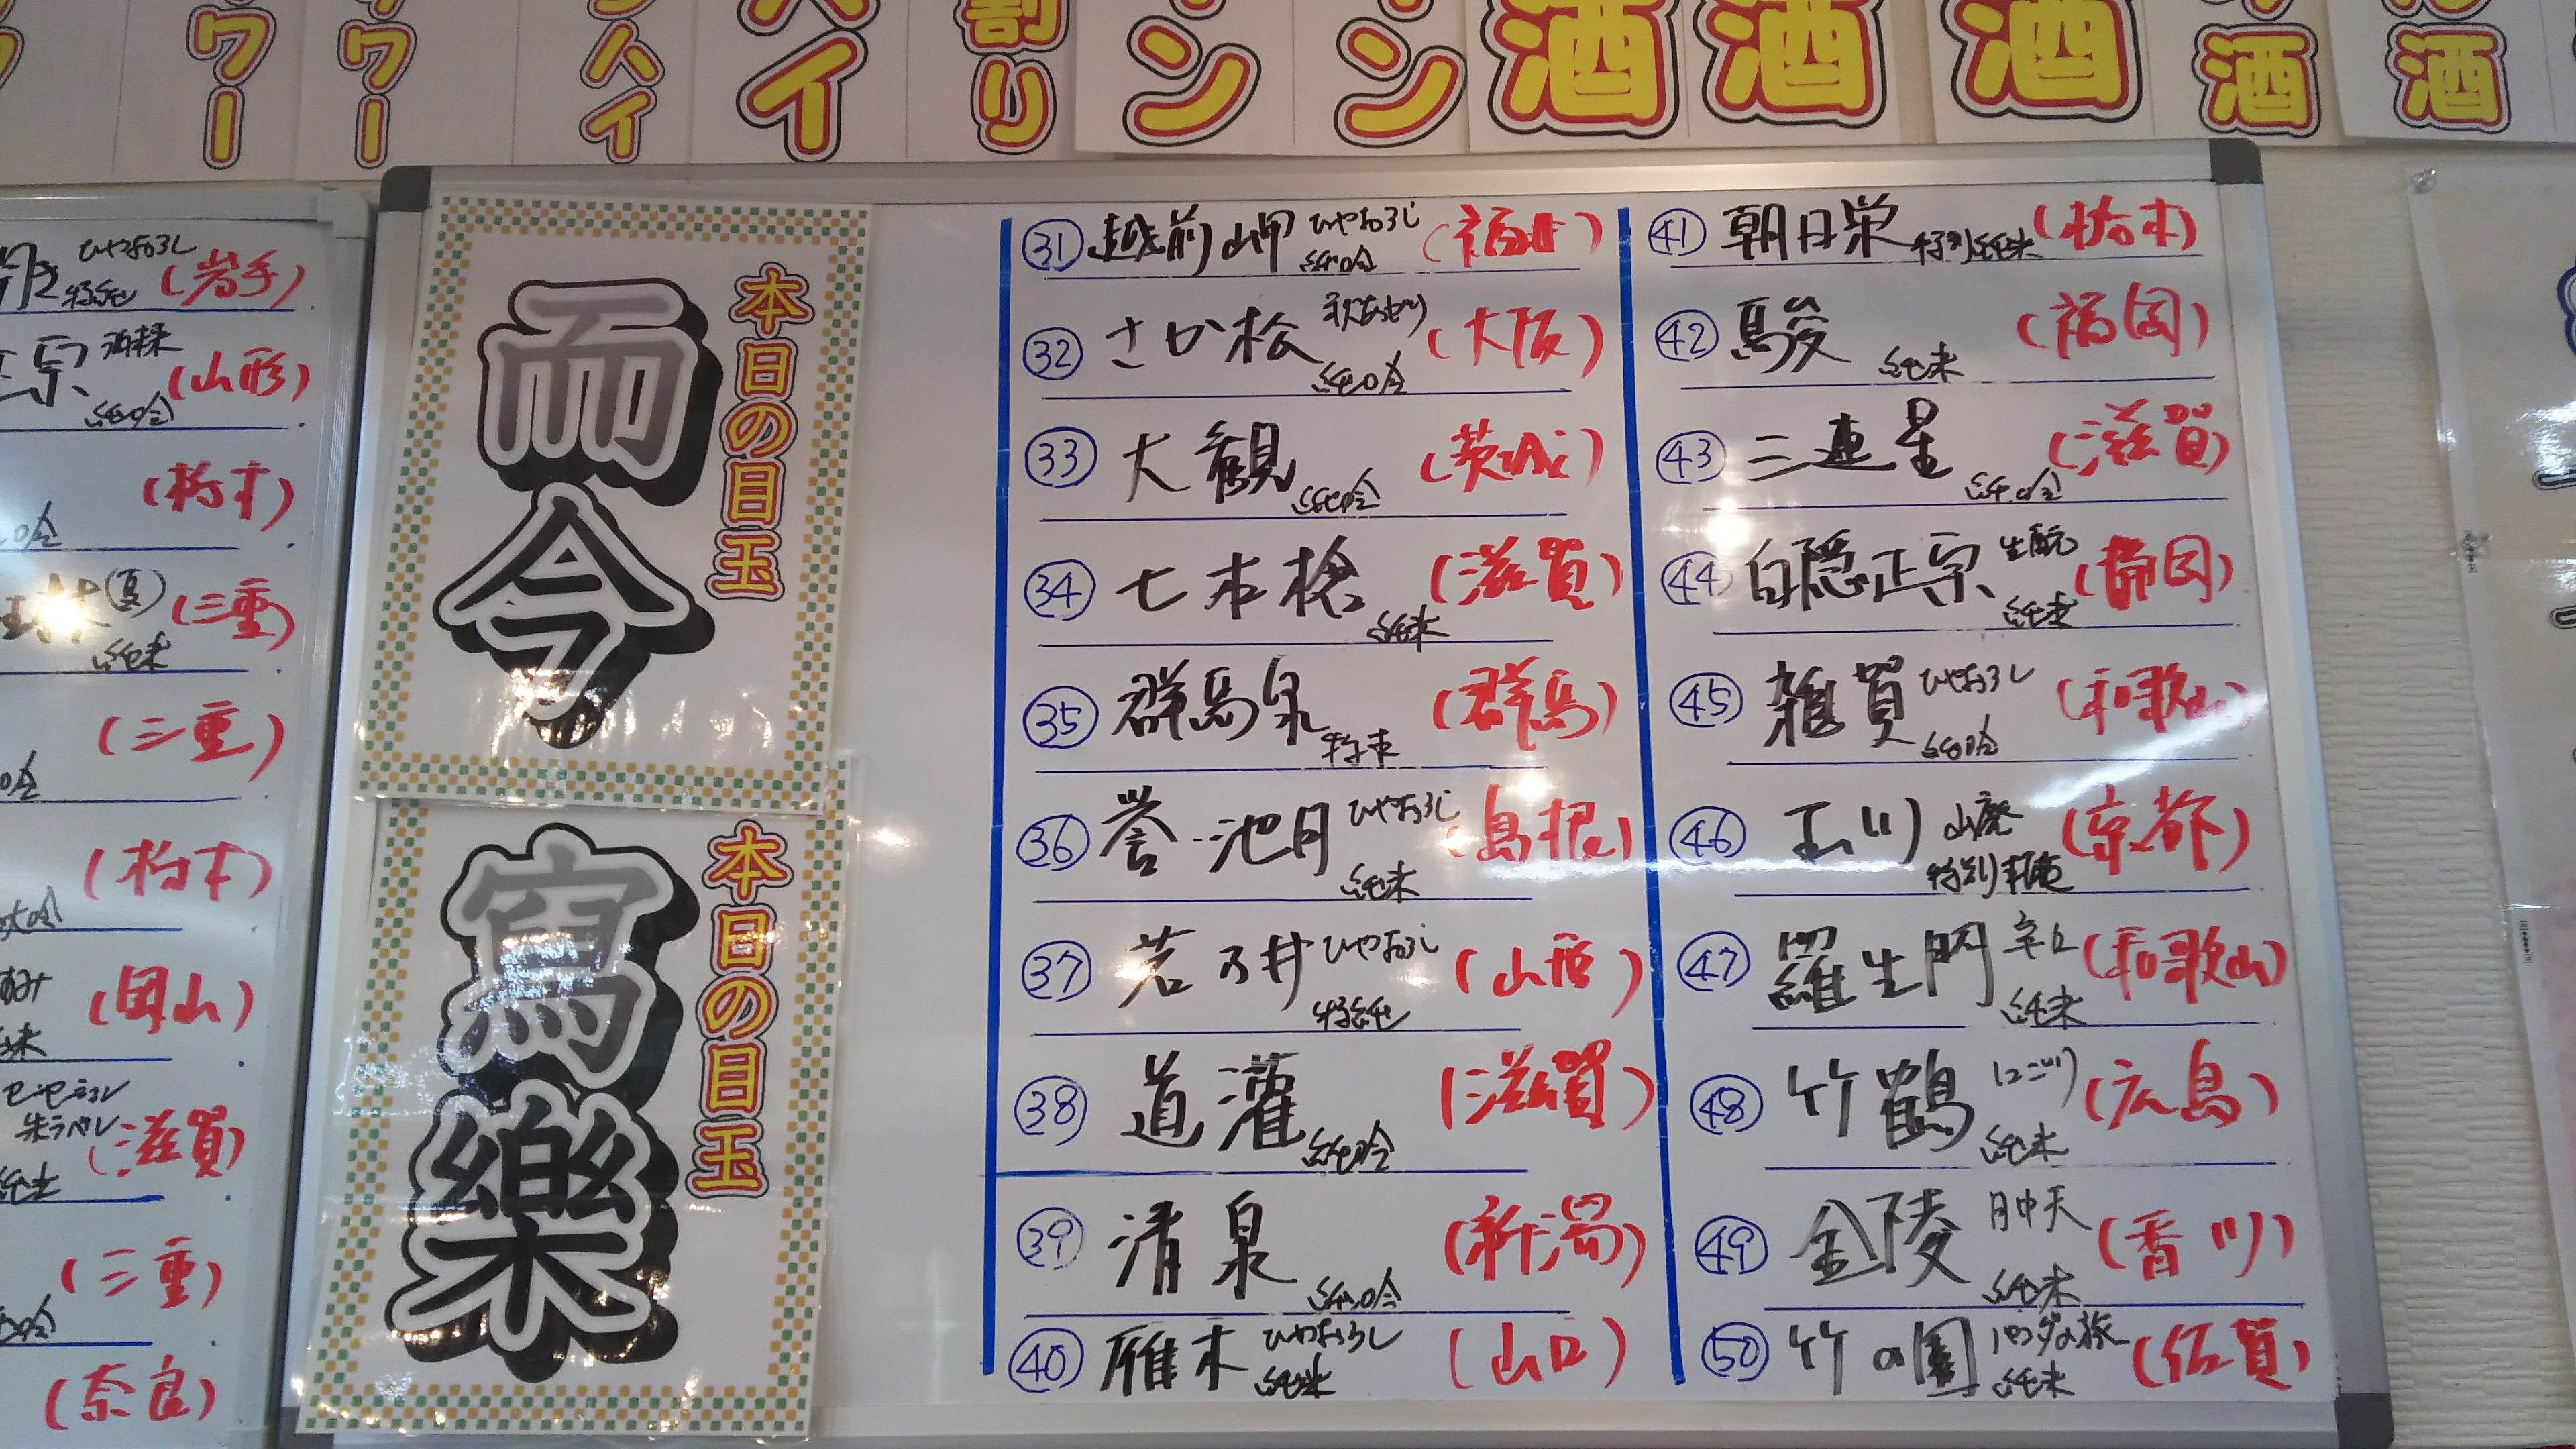 ワー
ワー
ハイ
ハイ
割り
ン
ン
酒
酒
酒
酒
酒
ひやおろし
特純 (岩手)
正宗 (山形)
純吟
(栃木)
(三重)
純米
(三重)
(栃木)
大吟
(岡山)
朱ラベル (滋賀)
(三重)
(奈良)
本日の目玉
而今
本日の目玉
寫樂
31 越前岬 ひやおろし 純吟 (福井)
32 さか松 秋あがり 純吟 (大阪)
33 大観 純吟 (茨城)
34 七本槍 純米 (滋賀)
35 群馬泉 特本 (群馬)
36 誉池月 ひやおろし 純米 (島根)
37 若乃井 ひやおろし 特純 (山形)
38 道灌 純吟 (滋賀)
39 清泉 純吟 (新潟)
40 雁木 ひやおろし 純米 (山口)
41 朝日栄 特別純米 (栃木)
42 駿 純米 (福岡)
43 三連星 純吟 (滋賀)
44 白隠正宗 生酛 純米 (静岡)
45 雑賀 ひやおろし 純吟 (和歌山)
46 玉川 山廃 特別 (京都)
47 羅生門 辛口 純米 (和歌山)
48 竹鶴 にごり 純米 (広島)
49 金陵 月中天 純米 (香川)
50 竹の園 パンダの旅 純米 (佐賀)